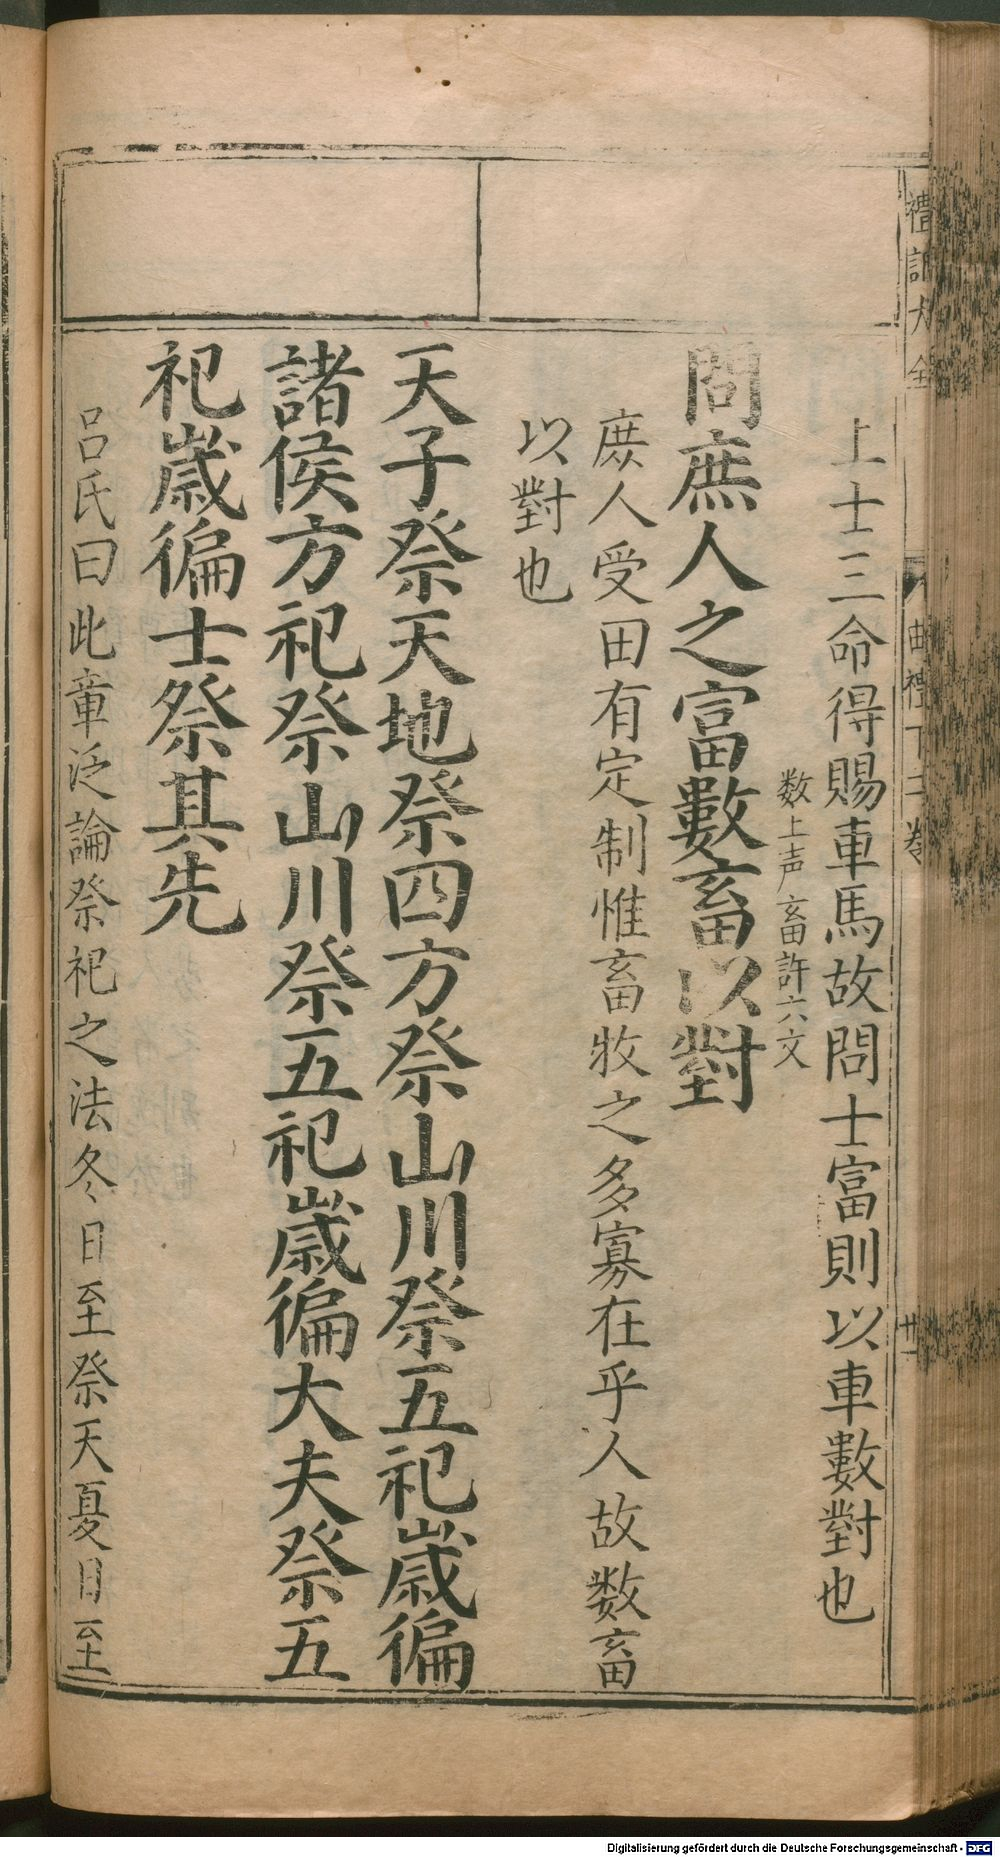 禮記大全
曲禮下二卷
廿一
上士三命得賜車馬故問士富則以車數對也
数上声畜許六文
問庶人之富數畜以對
庶人受田有定制惟畜牧之多寡在乎人故数畜
以對也
天子祭天地祭四方祭山川祭五祀歲徧
諸侯方祀祭山川祭五祀歲徧大夫祭五
祀歲徧士祭其先
呂氏曰此章泛論祭祀之法冬日至祭天夏日至
Digitalisierung gefördert durch die Deutsche Forschungsgemeinschaft - DFG